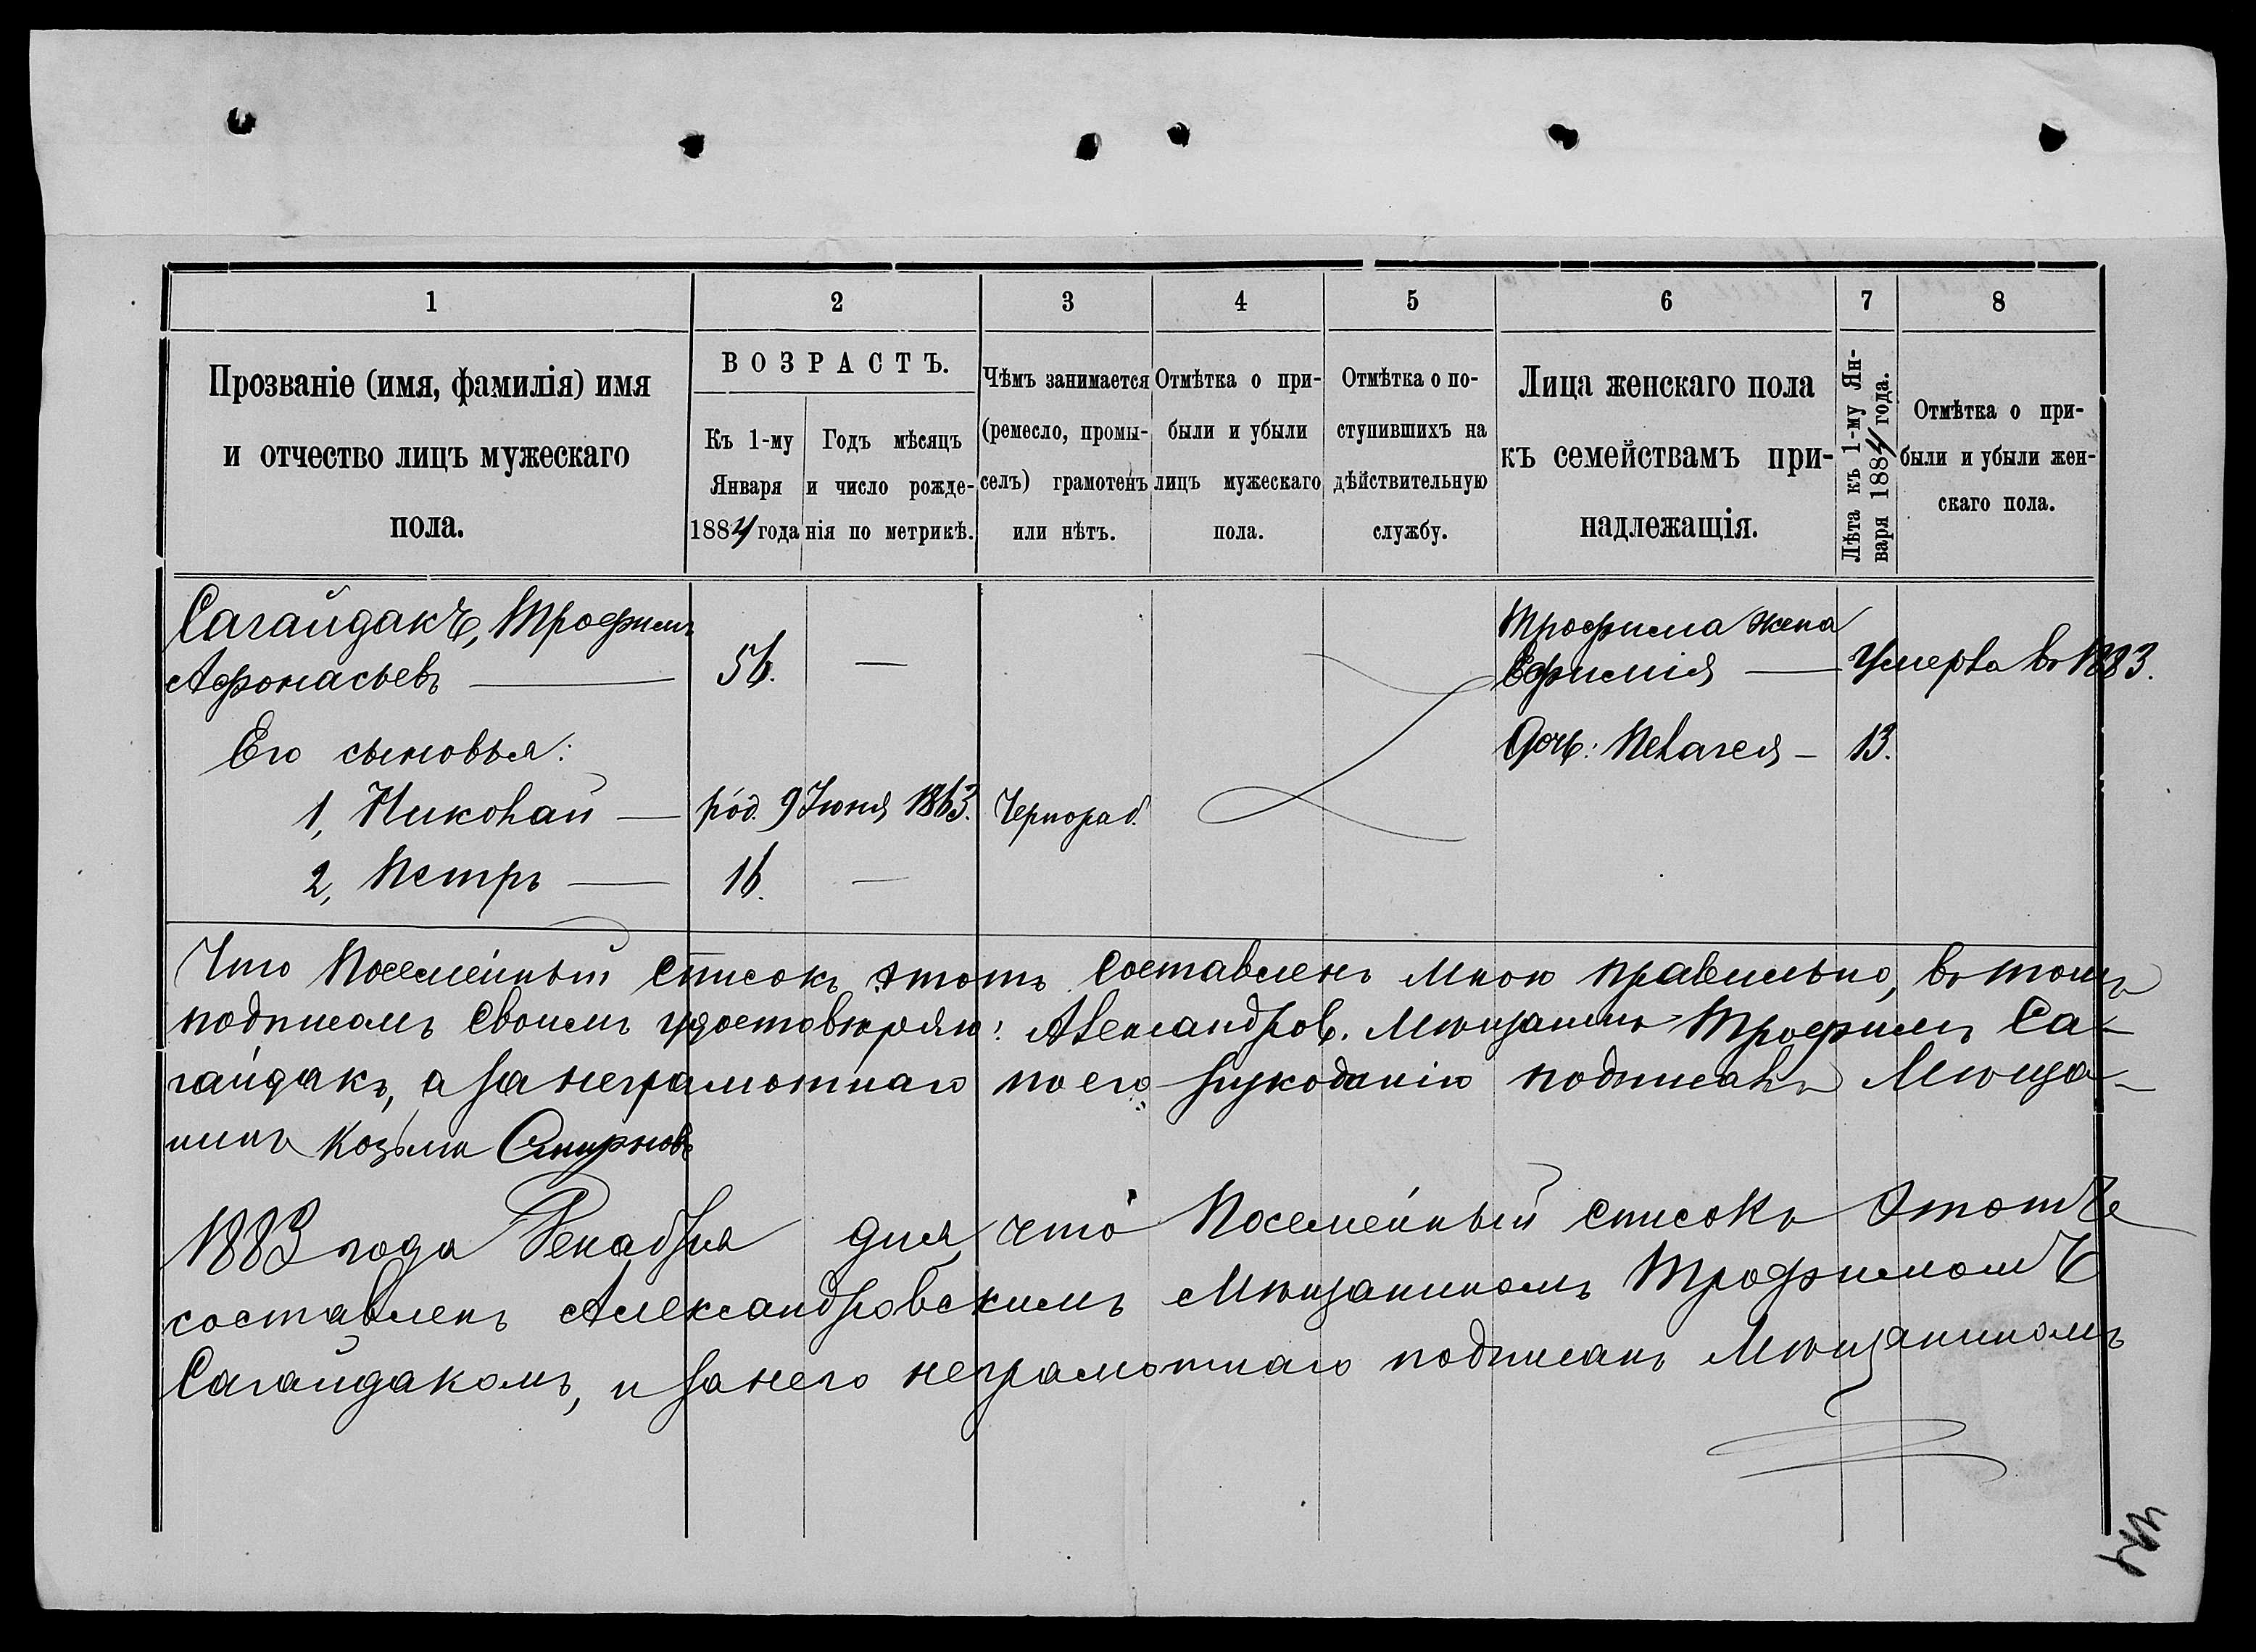 1 2 3 4 5 6 7 8
Прозваніе (имя, фамилія) имя
и отчество лицъ мужескаго
пола.
ВОЗРАСТЪ.
Къ 1-му
Января
1884 года
Годъ мѣсяцъ
и число рожде-
нія по метрикѣ.
Чѣмъ занимается
(ремесло, промы-
селъ) грамотенъ
или нѣтъ.
Отмѣтка о при-
были и убыли
лицъ мужескаго
пола.
Отмѣтка о по-
ступившихъ на
дѣйствительную
службу.
Лица женскаго пола
къ семействамъ при-
надлежащія.
Лѣта къ 1-му Ян-
варя 1884 года.
Отмѣтка о при-
были и убыли жен-
скаго пола.
Сагайдакъ, Трофимъ
Афонасьевъ — 56. —
Трофима жена
Ефимія — Умерла въ 1883.
Его сыновья:
Дочь: Пелагея — 13.
1, Николай — род. 9 Іюня 1863. Чернораб.
2, Петръ — 16. —
Что Посемейный списокъ этотъ составленъ мною правильно, въ томъ
подписомъ своимъ удостовѣряю: Александров. Мѣщанинъ Трофимъ Са-
гайдакъ, а за неграмотнаго по его рукоданію подписалъ Мѣща-
нинъ Козьма Смирновъ
1883 года Декабря дня, что Посемейный списокъ этотъ
составленъ Александровскимъ Мѣщаниномъ Трофимомъ
Сагайдакомъ, и за него неграмотнаго подписанъ Мѣщаниномъ